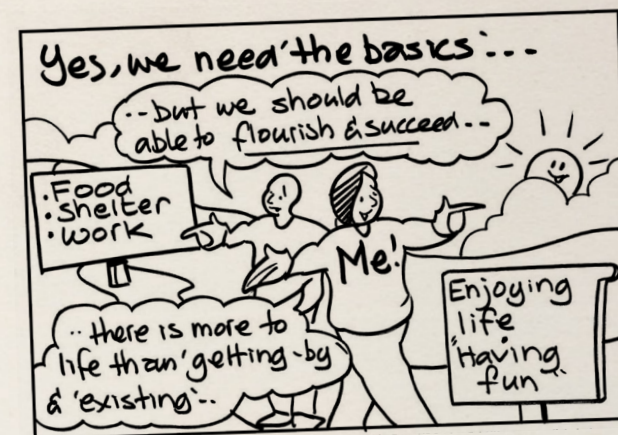 Yes, we need 'the basics'...
...but we should be
able to flourish & succeed...
• Food
• Shelter
• Work
Me!
...there is more to
life than 'getting-by
& 'existing'...
Enjoying
life
"Having
fun"